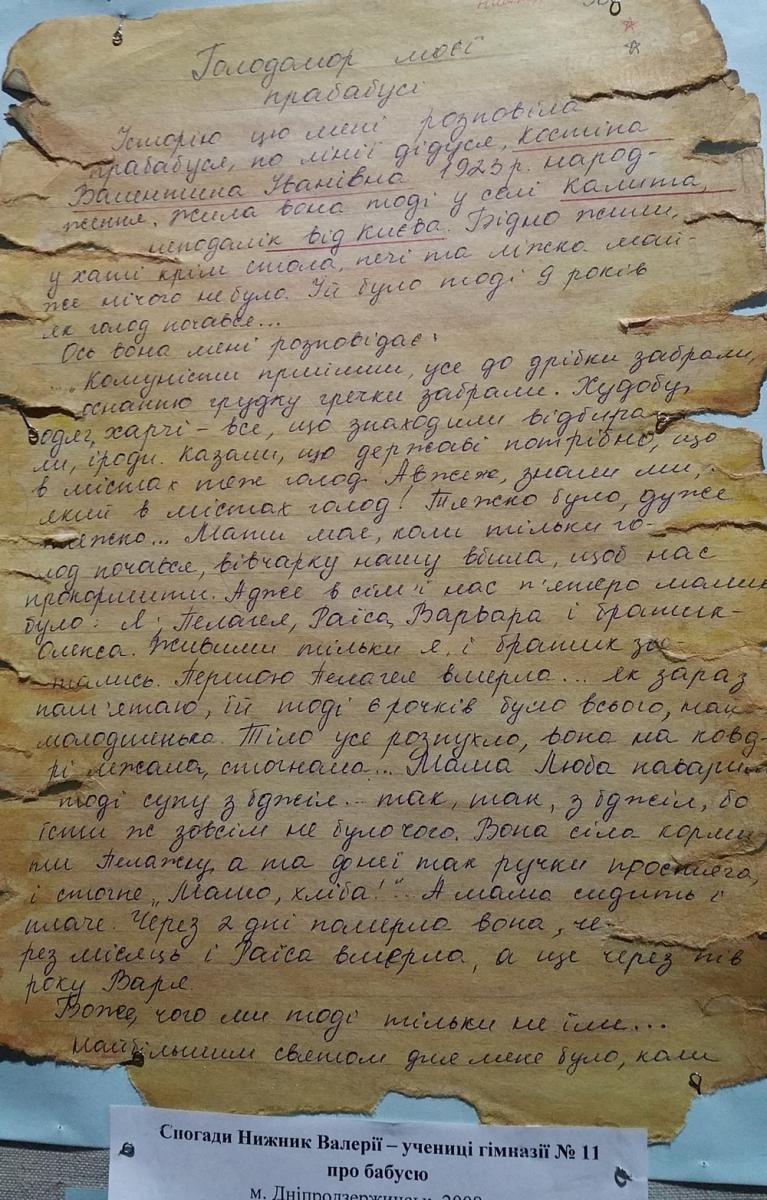 Голодомор моєї
прабабусі
Історію цю мені розповіла
прабабуся, по лінії дідуся, Костіна
Валентина Іванівна 1923 р. народ-
ження. Жила вона тоді у селі Калита,
неподалік від Києва. Бідно жили,
у хаті крім стола, печі та ліжка май-
же нічого не було. Їй було тоді 9 років
як голод почавсь...
Ось вона мені розповідає:
„Комуністи прийшли, усе до дрібки забрали,
останню грудку гречки забрали. Худобу,
одяг, харчі – все, що знаходили відбира-
ли, іроди. Казали, що державі потрібно, що
в містах теж голод. Авжеж, знали ми,
який в містах голод! Тяжко було, дуже
тяжко... Мати моя, коли тільки го-
лод почався, вівчарку нашу вбила, щоб нас
прокормити. Адже в сім'ї нас п'ятеро малих
було: Я, Пелагея, Раїса, Варвара і братик
Олекса. Живими тільки я і братик зос-
тались. Першою Пелагея вмерла... Як зараз
пам'ятаю, їй тоді 6 рочків було всього, най-
молодшенька. Тіло усе розпухло, вона на ковд-
рі лежала, стогнала... Мама Люба наварила
тоді супу з бджіл... так, так, з бджіл, бо
їсти ж зовсім не було чого. Вона сіла корми-
ти Пелажку, а та до неї так ручки простяга,
і стогне „Мамо, хліба!"... А мама сидить і
плаче. Через 2 дні померла вона, че-
рез місяць і Раїса вмерла, а ще через пів
року Варя.
Боже, чого ми тоді тільки не їли...
Найбільшим святом для мене було, коли
Спогади Нижник Валерії – учениці гімназії № 11
про бабусю
м. Дніпродзержинськ